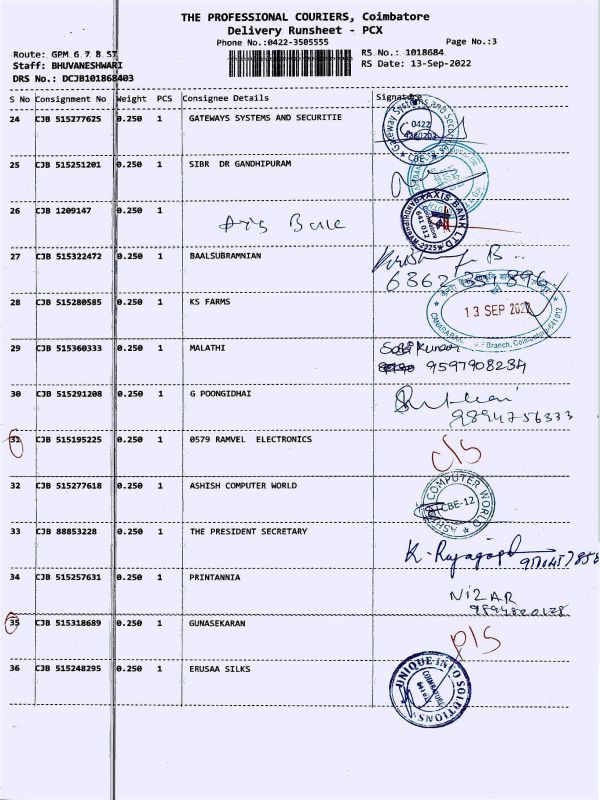 THE PROFESSIONAL COURIERS, Coimbatore
Delivery Runsheet - PCX
Phone No.:0422-3505555
Page No.:3
Route: GPM 6 7 8 ST
Staff: BHUVANESHWARI
DRS No.: DCJB101868403
RS No.: 1018684
RS Date: 13-Sep-2022
S No Consignment No Weight PCS Consignee Details Signature
24 CJB 515277625 0.250 1 GATEWAYS SYSTEMS AND SECURITIE
0422
CBE
25 CJB 515251201 0.250 1 SIBR DR GANDHIPURAM
26 CJB 1209147 0.250 1
AXIS BANK LTD
641 012
27 CJB 515322472 0.250 1 BAALSUBRAMNIAN
28 CJB 515280585 0.250 1 KS FARMS
13 SEP 2022
Branch, Coimbatore-641012
29 CJB 515360333 0.250 1 MALATHI
9597908234
30 CJB 515291208 0.250 1 G POONGIDHAI
9894756333
31 CJB 515195225 0.250 1 0579 RAMVEL ELECTRONICS
32 CJB 515277618 0.250 1 ASHISH COMPUTER WORLD
ASHISH COMPUTER WORLD
CBE-12
33 CJB 88853228 0.250 1 THE PRESIDENT SECRETARY
34 CJB 515257631 0.250 1 PRINTANNIA
NIZAR
35 CJB 515318689 0.250 1 GUNASEKARAN
36 CJB 515248295 0.250 1 ERUSAA SILKS
UNIQUE INFO SOLUTIONS